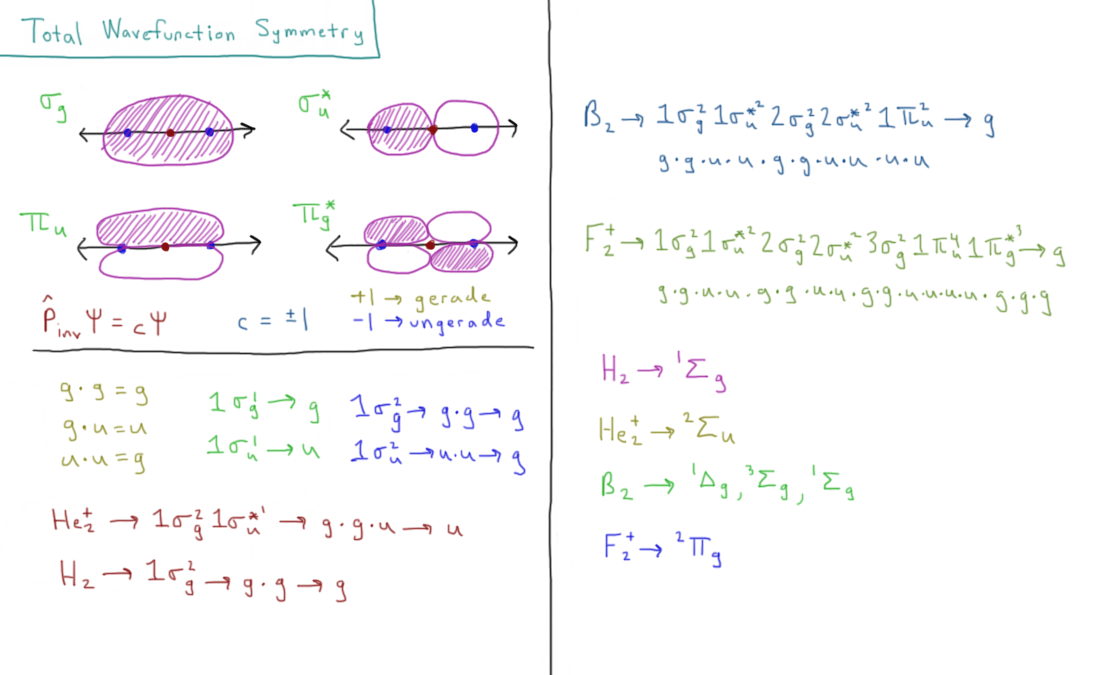 Total Wavefunction Symmetry
σg
σu*
πu
πg*
P̂inv Ψ = cΨ
c = ±1
+1 → gerade
-1 → ungerade
g·g = g
g·u = u
u·u = g
1σg¹ → g
1σu¹ → u
1σg² → g·g → g
1σu² → u·u → g
He₂⁺ → 1σg² 1σu*¹ → g·g·u → u
H₂ → 1σg² → g·g → g
B₂ → 1σg² 1σu*² 2σg² 2σu*² 1πu² → g
g·g·u·u·g·g·u·u·u·u
F₂⁺ → 1σg² 1σu*² 2σg² 2σu*² 3σg² 1πu⁴ 1πg*³ → g
g·g·u·u·g·g·u·u·g·g·u·u·u·u·g·g·g
H₂ → ¹Σg
He₂⁺ → ²Σu
B₂ → ¹Δg, ³Σg, ¹Σg
F₂⁺ → ²Πg